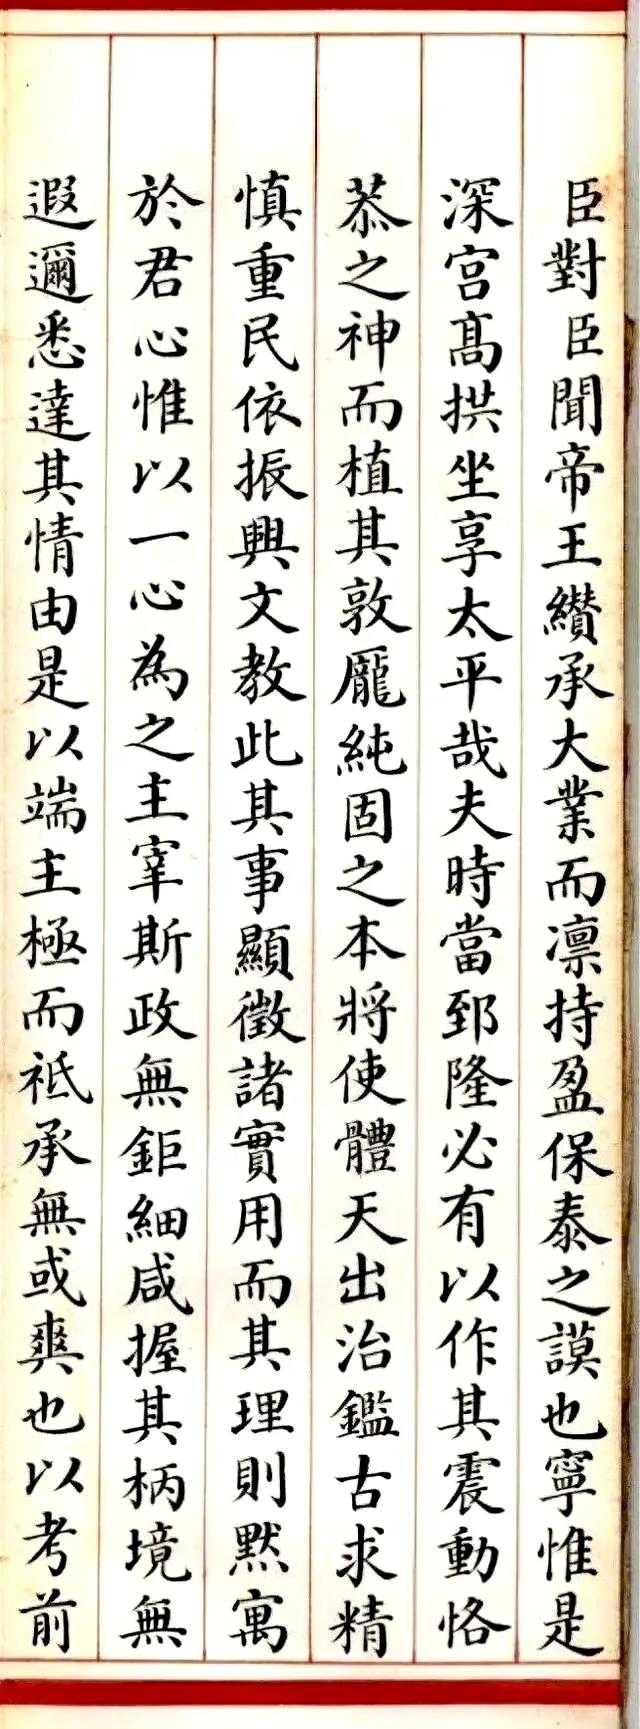 臣對臣聞帝王纘承大業而凛持盈保泰之謨也寧惟是
深宫髙拱坐享太平哉夫時當郅隆必有以作其震動恪
恭之神而植其敦龐純固之本將使體天出治鑑古求精
慎重民依振興文教此其事顯徵諸實用而其理則默寓
於君心惟以一心為之主宰斯政無鉅細咸握其柄境無
遐邇悉達其情由是以端主極而祗承無或爽也以考前